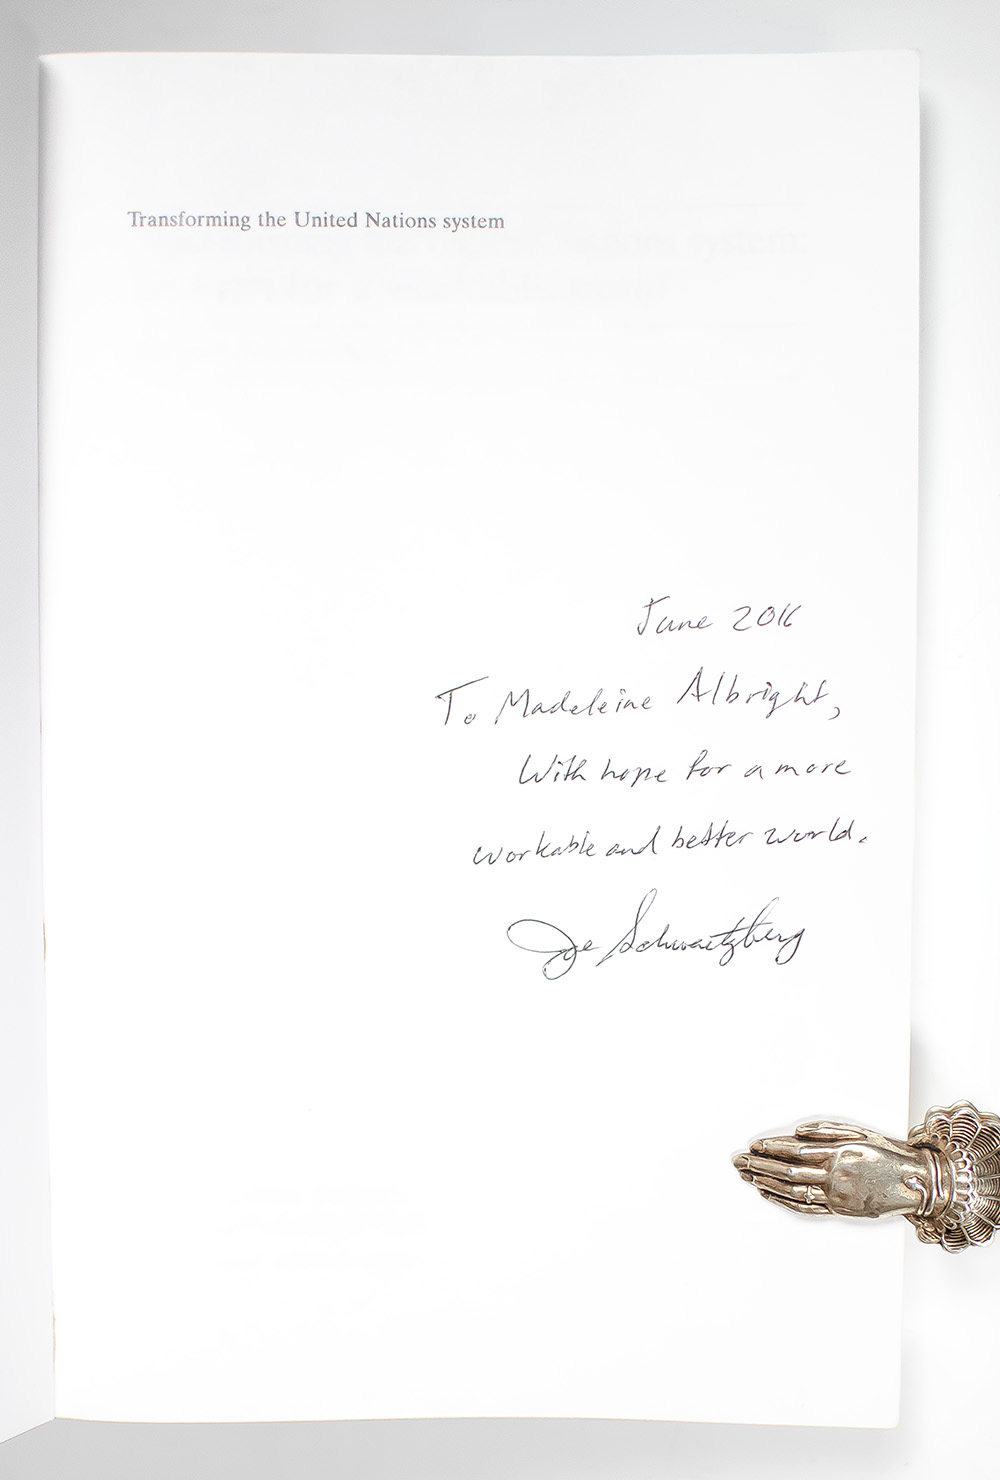 Transforming the United Nations system
June 2016
To Madeleine Albright,
With hope for a more
workable and better world.
Joe Schwartzberg